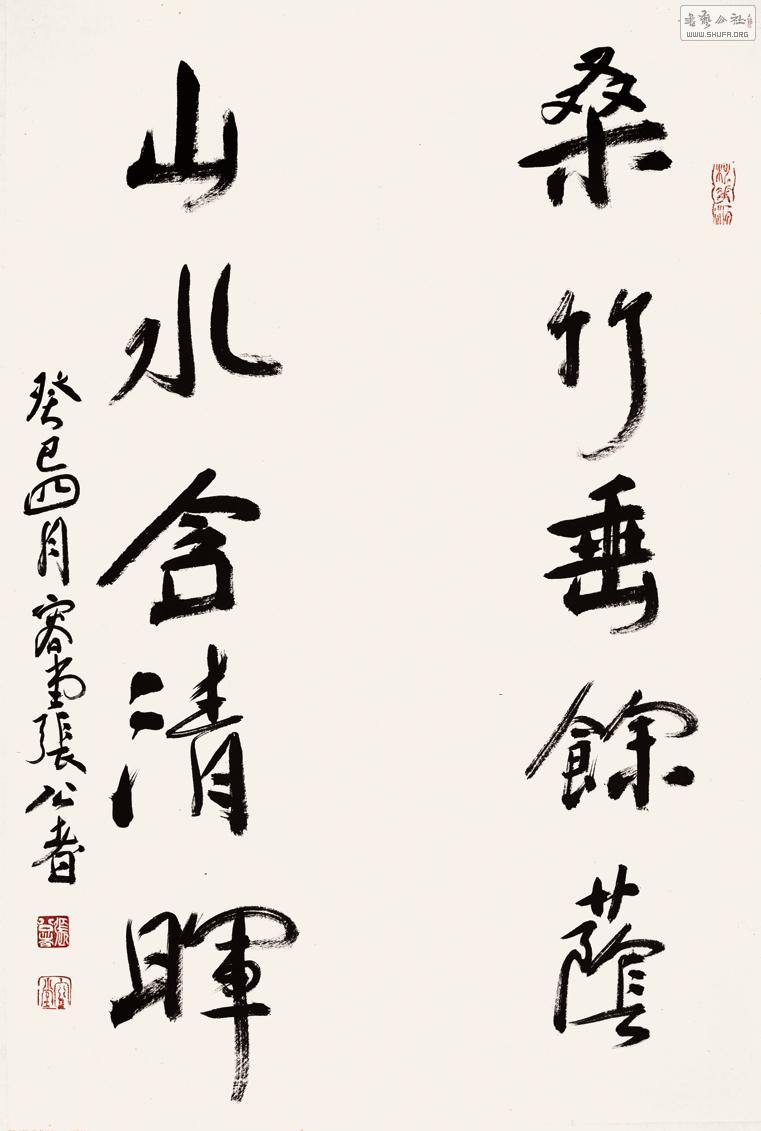 桑竹垂餘蔭
山水含清暉
癸巳四月容堂張公者
書藝公社
WWW.SHUFA.ORG